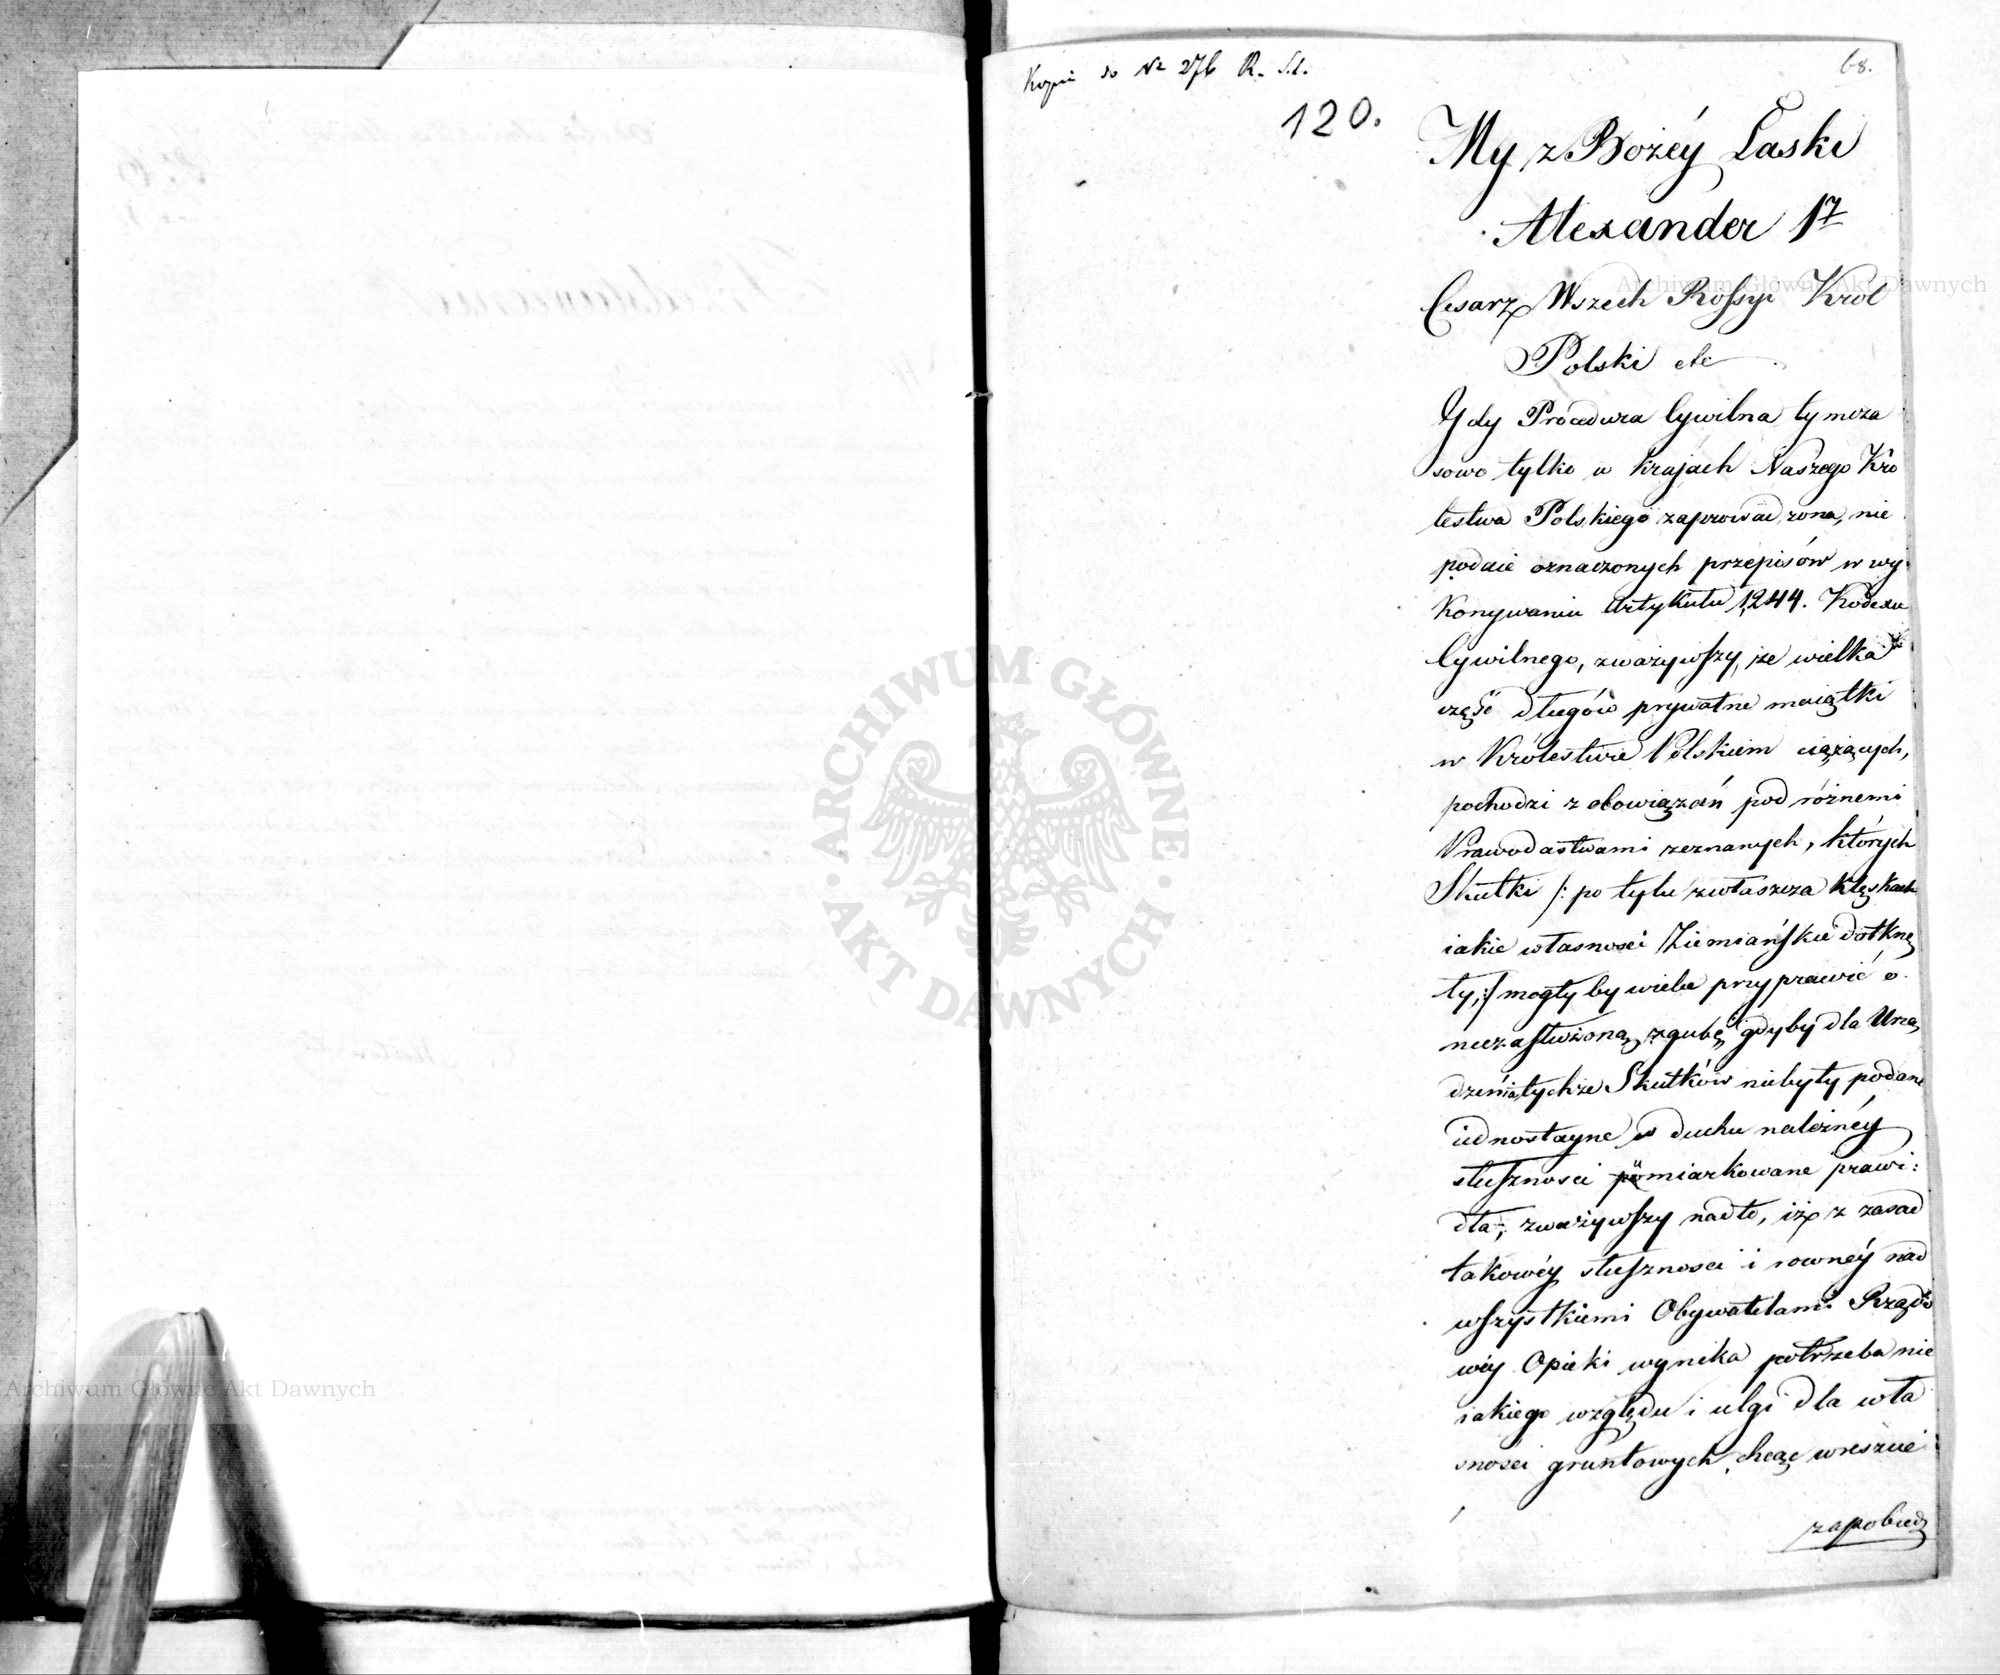 Kopia do Nr 276 R. S.t.
68.
120.
My z Bożey Łaski
Alexander 1szy
Cesarz Wszech Rossyi Krol
Polski etc
Gdy Procedura Cywilna tymcza
sowo tylko w krajach Naszego Kró
lestwa Polskiego zaprowadzona, nie
podaie oznaczonych przepisów w wy
konywaniu Artykułu 1244. Kodexu
Cywilnego, zważywszy, że wielka
część długów prywatne maiątki
w Królestwie Polskiem ciążących,
pochodzi z obowiązań pod różnemi
Prawodastwami zeznanych, których
Skutki /: po tylu zwłaszcza klęskach
iakie własności Ziemiańskie dotknę
ły, :/ mogły by wiele przyprawić o
niezasłużoną zgubę, gdyby dla Urzą
dzenia tychże Skutków niebyły podane
iednostayne w duchu należnéy
słuszności pomiarkowane prawi:
dła; zważywszy nadto, iż z zasad
takowéy słuszności i równéy nad
wszystkiemi Obywatelami Rządo
wéy Opieki wynika potrzeba nie
iakiego względu i ulgi dla wła
sności gruntowych, chcąc wreszcie
zapobiedz
Archiwum Główne Akt Dawnych
Archiwum Główne Akt Dawnych
ARCHIWUM GŁÓWNE · AKT DAWNYCH ·